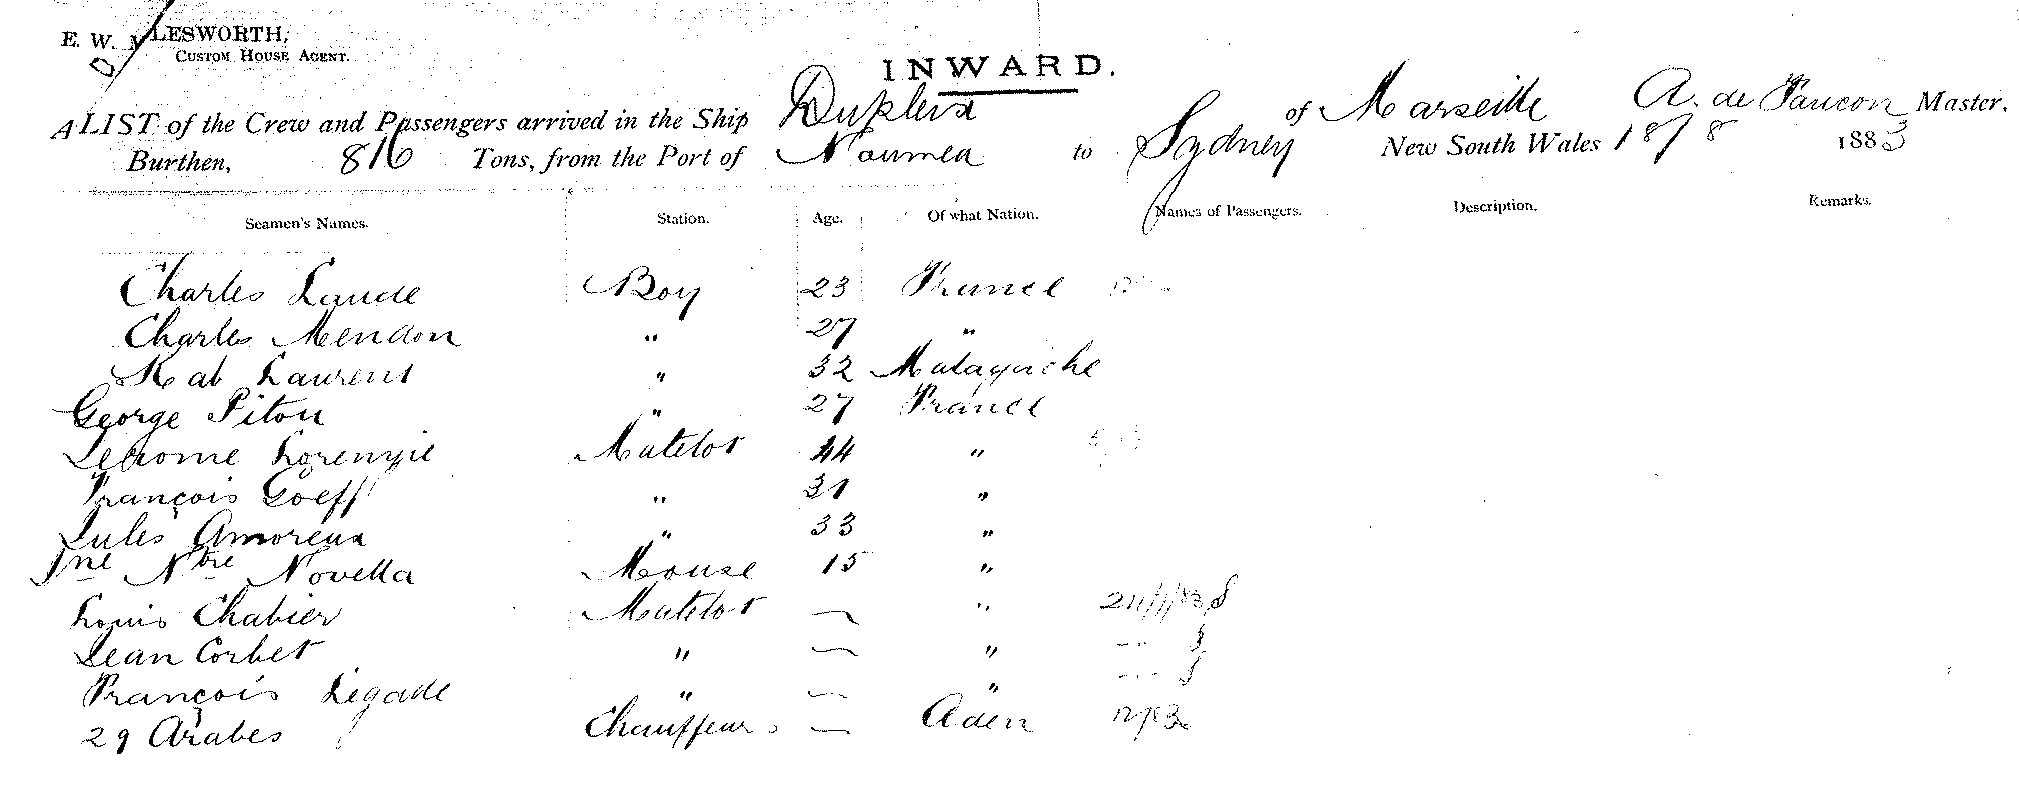 E. W. LESWORTH,
CUSTOM HOUSE AGENT.
INWARD.
A LIST of the Crew and Passengers arrived in the Ship Dupleix of Marseille A. de Faucon Master,
Burthen, 816 Tons, from the Port of Noumea to Sydney New South Wales 18/8 1883
Seamen's Names. Station. Age. Of what Nation. Names of Passengers. Description. Remarks.
Charles Laude Boy 23 France
Charles Mendon " 27 "
Kab Laurent " 32 Malaguche
George Piton " 27 France
Jerome Lorenzie Matelot 44 "
François Goeff " 31 "
Jules Amoreux " 33 "
Jne Ntre Novella Mouse 15 "
Louis Chabier Matelot — "
Jean Corbet " — "
François Legade " — "
29 Arabes Chauffeurs — Aden